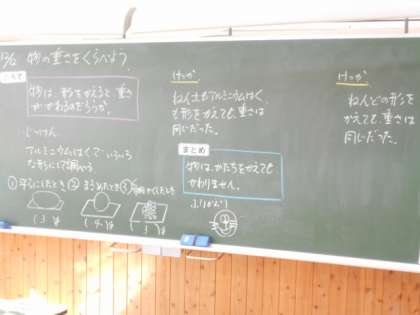 物の重さをくらべよう。
物は、形をかえると重さ
がかわるのだろうか。
じっけん
アルミニウムはくでいろいろ
な形にして調べる
① 平らにしたとき ② まるめたとき ③
けっか
ねん土もアルミニウムはく
も形をかえても、重さは
同じだった。
まとめ
物は、かたちをかえても
かわりません。
ふりかえり
けっか
ねんどの形を
かえても、重さは
同じだった。